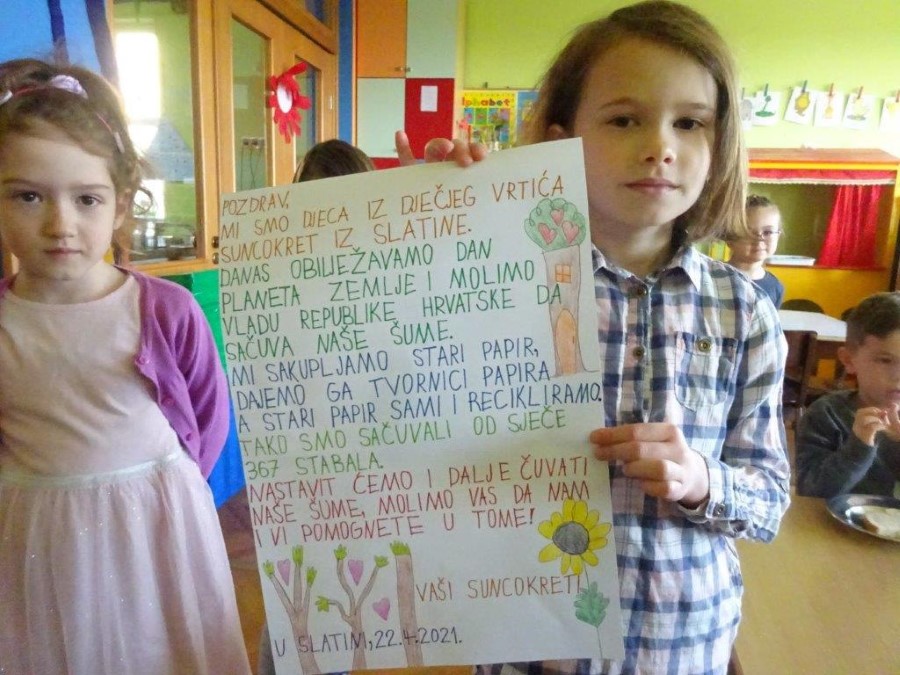 POZDRAV,
MI SMO DJECA IZ DJEČJEG VRTIĆA
SUNCOKRET IZ SLATINE.
DANAS OBILJEŽAVAMO DAN
PLANETA ZEMLJE I MOLIMO
VLADU REPUBLIKE HRVATSKE DA
SAČUVA NAŠE ŠUME.
MI SAKUPLJAMO STARI PAPIR,
DAJEMO GA TVORNICI PAPIRA,
A STARI PAPIR SAMI I RECIKLIRAMO.
TAKO SMO SAČUVALI OD SJEČE
367 STABALA.
NASTAVIT ĆEMO I DALJE ČUVATI
NAŠE ŠUME, MOLIMO VAS DA NAM
I VI POMOGNETE U TOME!
VAŠI SUNCOKRETI
U SLATINI, 22.4.2021.
lphabet